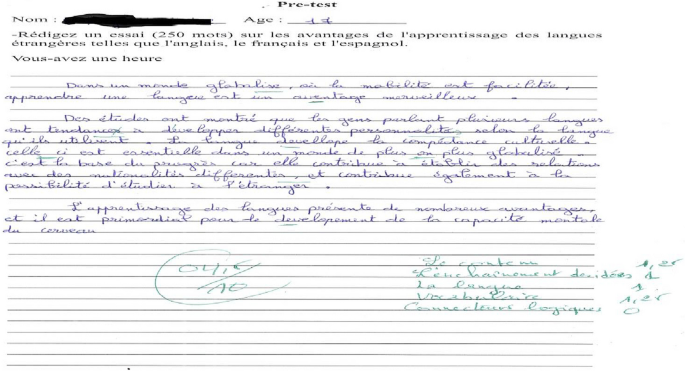 Pre-test
Nom : Age : 17
-Rédigez un essai (250 mots) sur les avantages de l'apprentissage des langues
étrangères telles que l'anglais, le français et l'espagnol.
Vous-avez une heure
Dans un monde globalise, où la mobilité est facilitée,
apprendre une langue est un aventage merveilleux.
Des études ont montré que les gens parlant plusieurs langues
ont tendance à développer différentes personnalités selon la langue
qu'ils utilisent. La langue devellope la compédance culturelle.
celle ci est essentielle dans un monde de plus en plus globalisé.
c'est la base du progrès car elle contribue à établir des relations
avec des nationalités differentes, et contribue également à la
possibilité d'étudier à l'étranger.
L'apprentissage des langues présente de nombreux avantages,
et il est primordial pour le developement de la capacité mentale
du cerveau
04,5
/10
Le contenu 1,25
L'enchaînement des idées 1
La langue 1
Vocabulaire 1,25
Connecteurs logiques 0